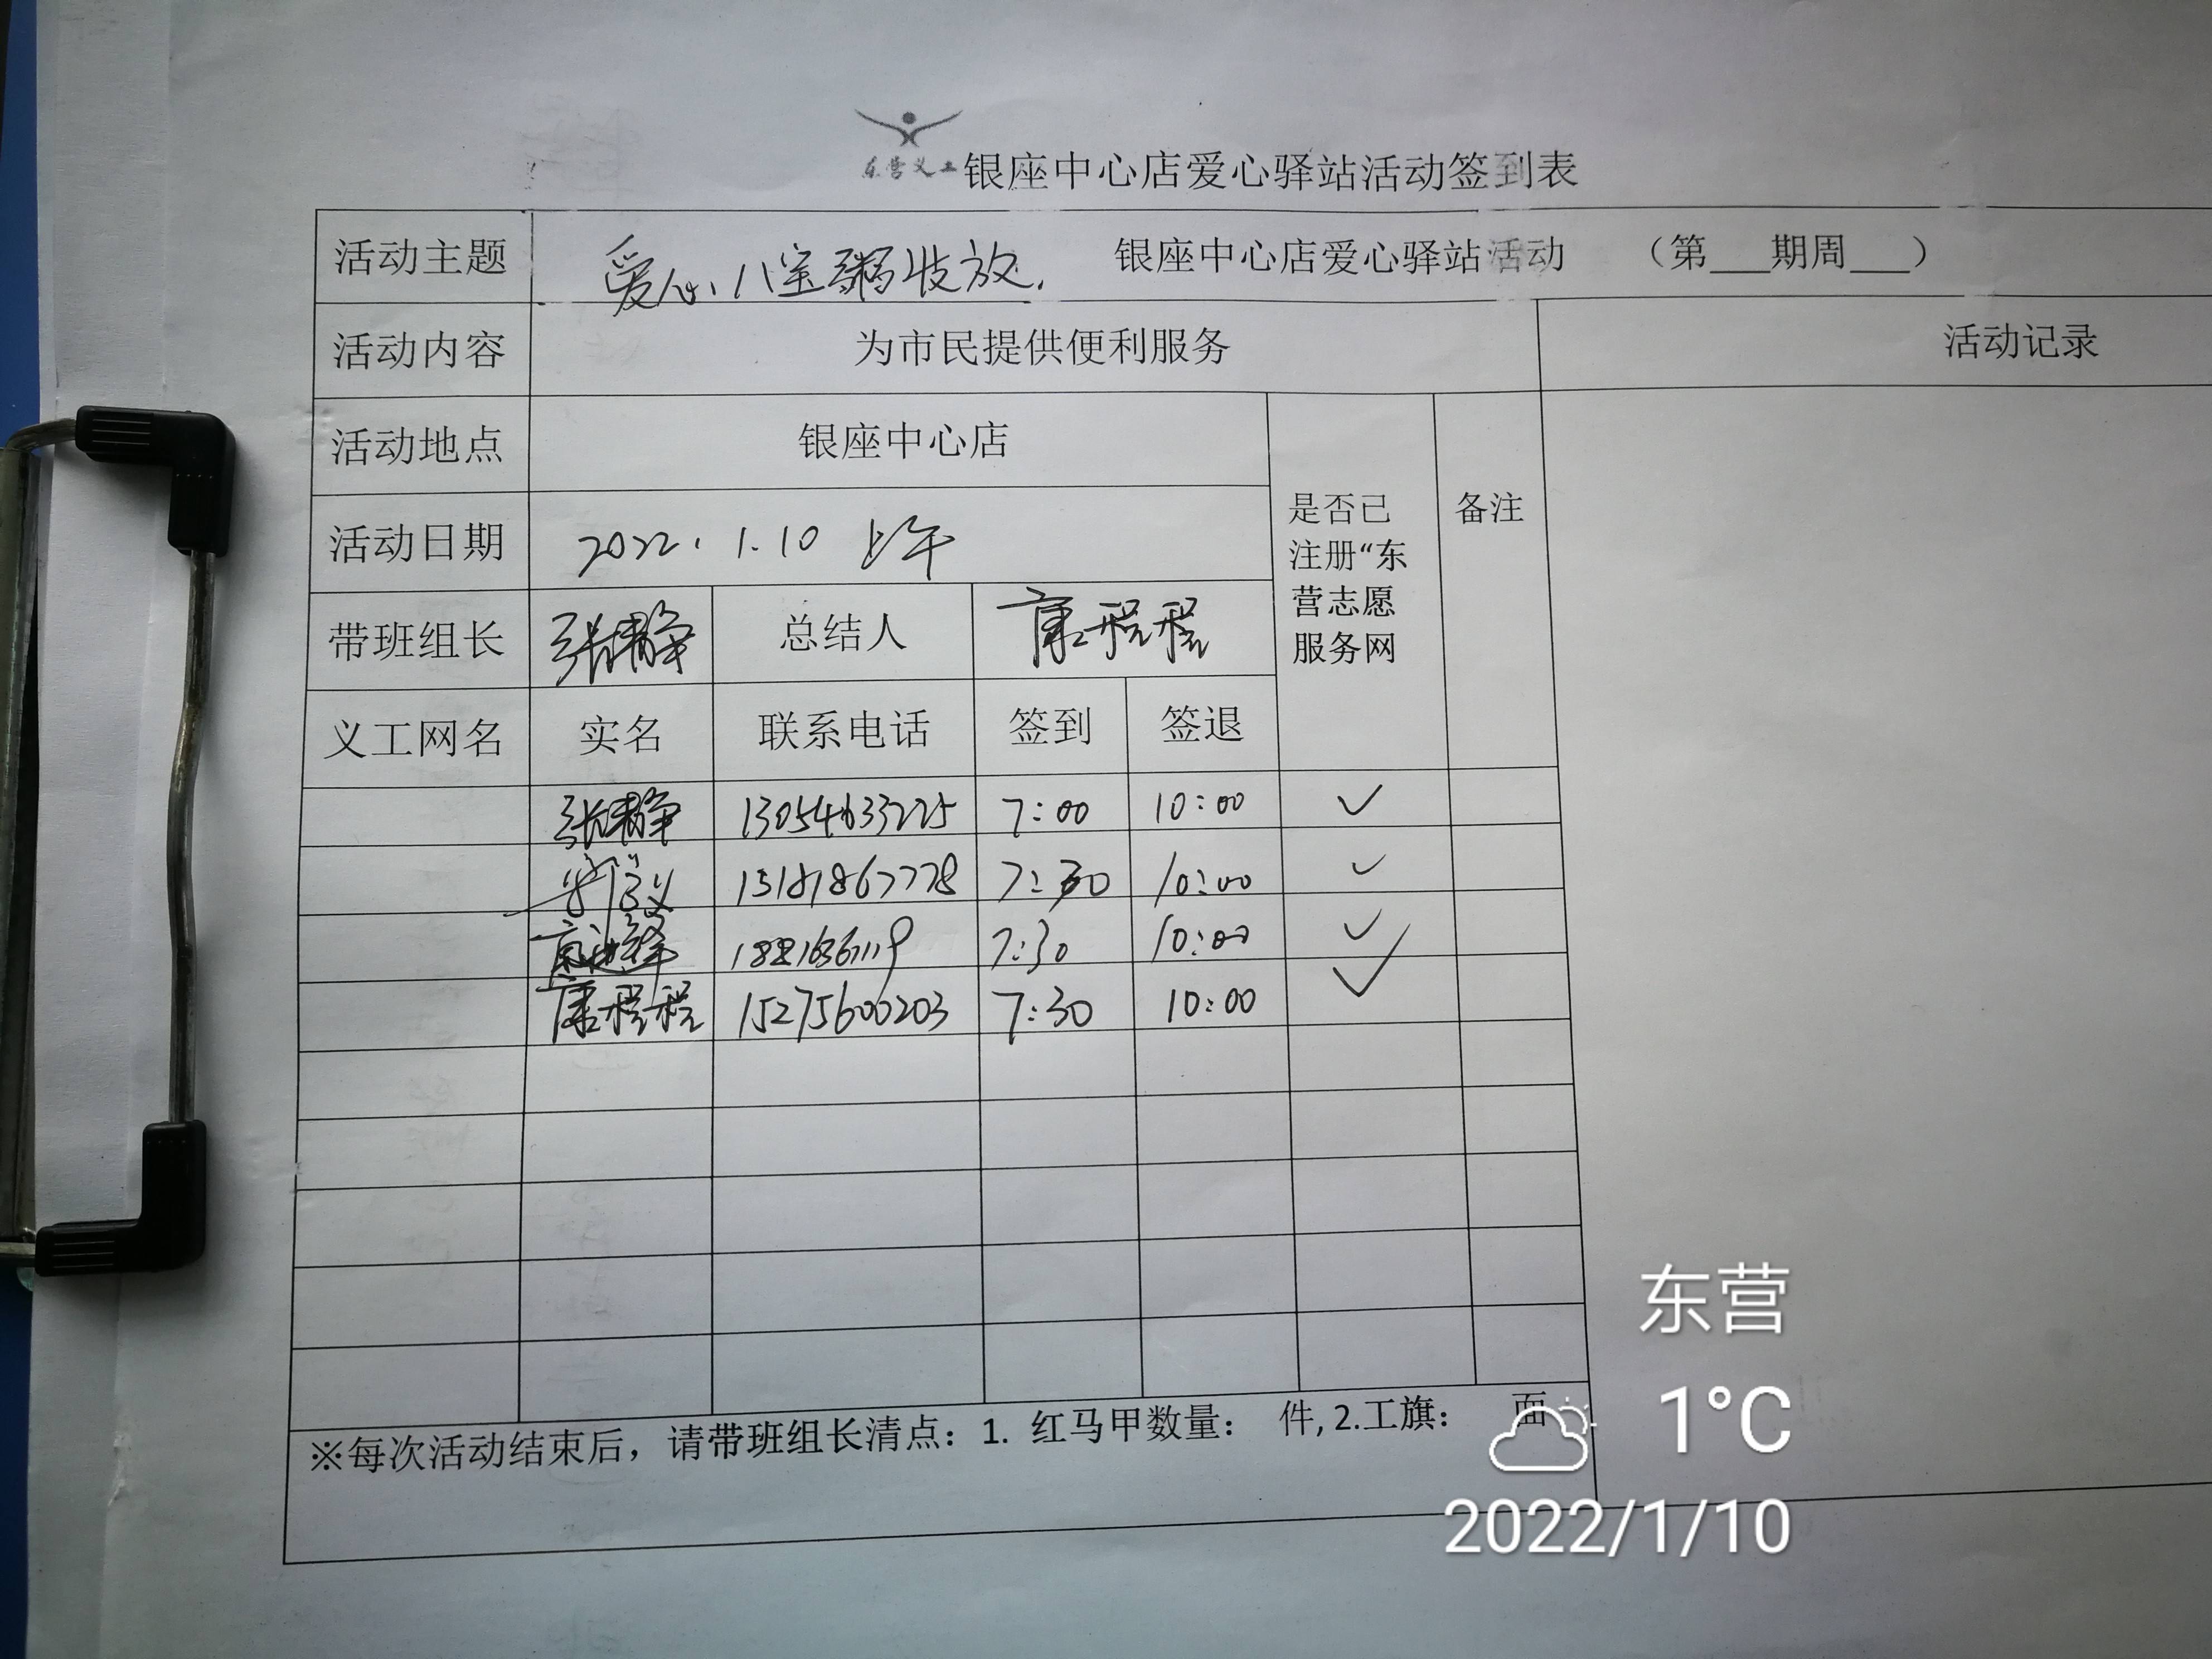 东营义工 银座中心店爱心驿站活动签到表
活动主题 爱心八宝粥发放. 银座中心店爱心驿站活动 （第___期周___）
活动内容 为市民提供便利服务 活动记录
活动地点 银座中心店
是否已
注册“东
营志愿
服务网
备注
活动日期 2022.1.10 上午
带班组长 张静 总结人 康程程
义工网名 实名 联系电话 签到 签退
张静 13054633225 7:00 10:00 ✓
7:30 10:00 ✓
7:30 10:00 ✓
康程程 15275600203 7:30 10:00 ✓
※每次活动结束后，请带班组长清点：1. 红马甲数量： 件, 2.工旗： 面
东营
1°C
2022/1/10